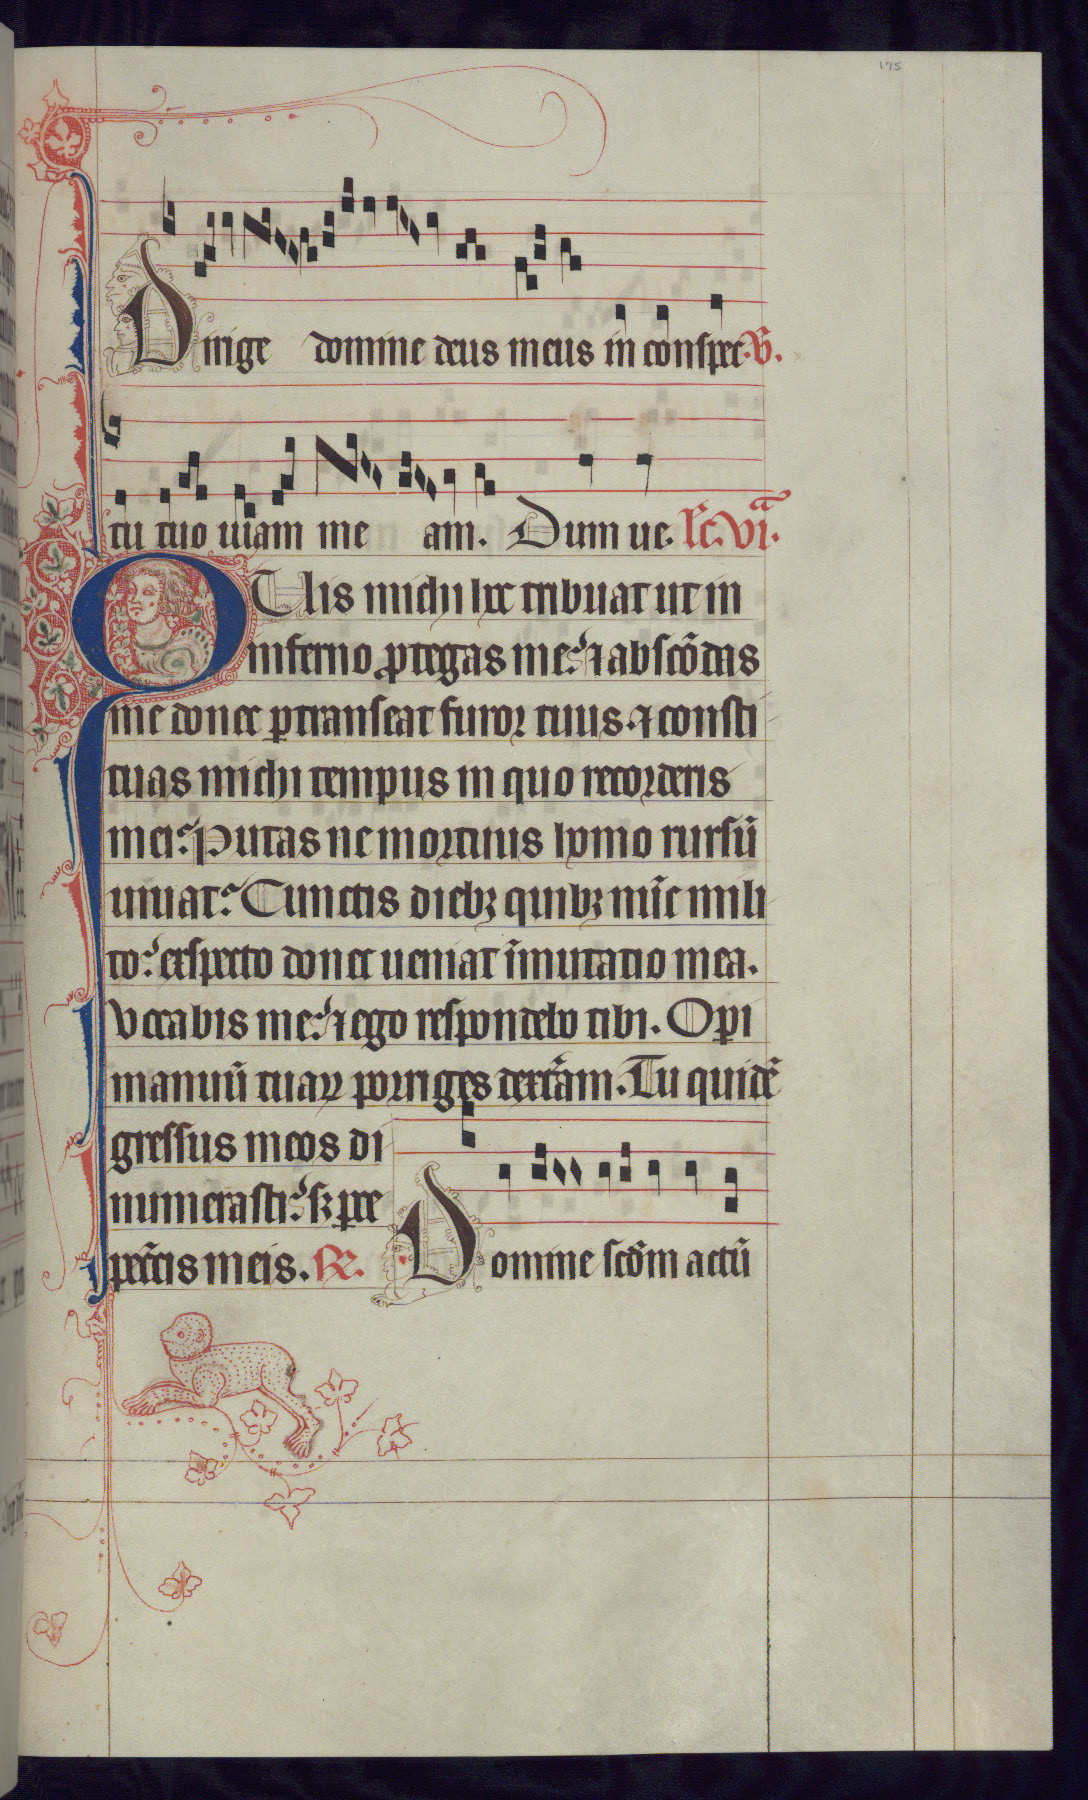 175
Dirige domine deus meus in conspec. V.
tu tuo uiam me am. Dum ue. Lc. VIa.
QUis michi hec tribuat ut in
inferno ꝓtegas me? ⁊ abscōdas
me donec ꝑtranseat furor tuus. ⁊ consti
tuas michi tempus in quo recorderis
mei? Putas ne mortuus homo rursū
uiuat? Cunctis diebꝫ quibꝫ nūc mili
to? exspecto donec ueniat īmutatio mea.
Vocabis me? ⁊ ego respondebo tibi. Opi
manuū tuaꝝ porriges dextram. Tu quidē
gressus meos di
numerasti? sꝫ ꝑce
peccīs meis. R. Domine scdm actū